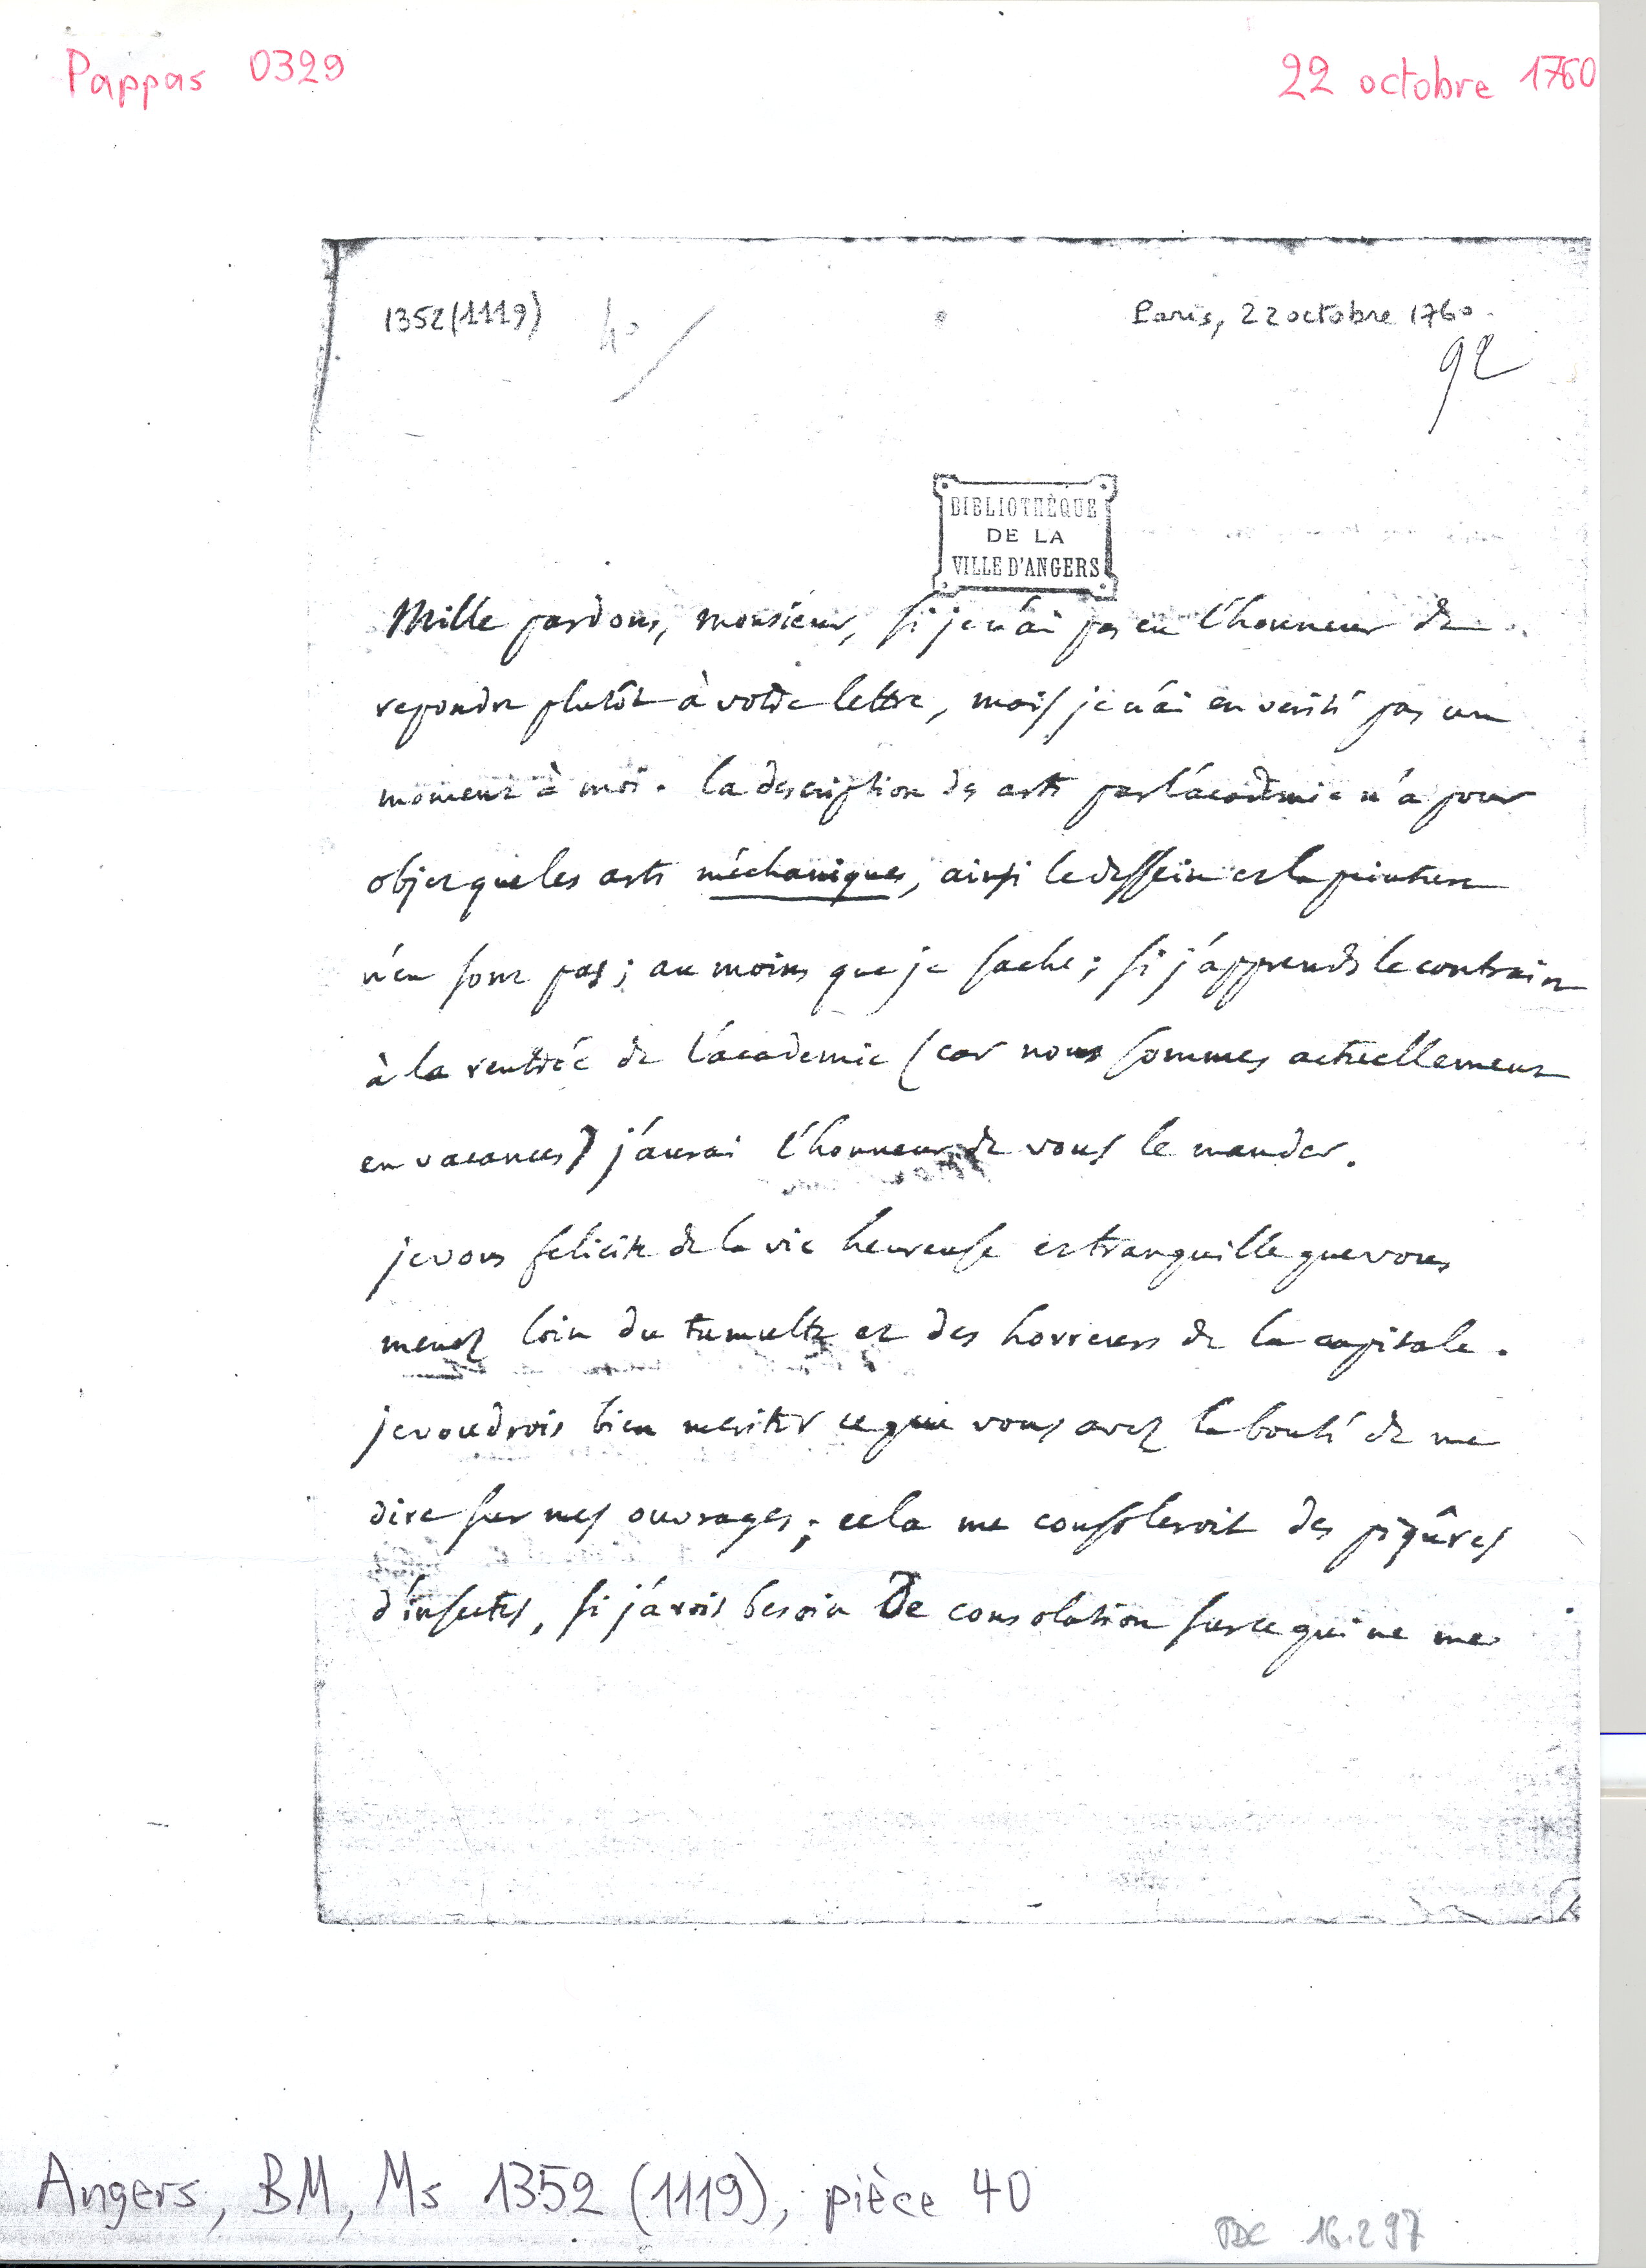 Pappas 0329
22 octobre 1760
1352 (1119)
40
Paris, 22 octobre 1760.
92
BIBLIOTHÈQUE
DE LA
VILLE D'ANGERS
Mille pardons, monsieur, si je n'ai pas eu l'honneur de
repondre plutôt à votre lettre, mais je n'ai en verité pas un
moment à moi. la description des arts par l'academie n'a pour
objet que les arts méchaniques, ainsi le dessein et la peinture
n'en sont pas; au moins que je sache; si j'apprends le contraire
à la rentrée de l'academie (car nous sommes actuellement
en vacances) j'aurai l'honneur de vous le mander.
je vous felicite de la vie heureuse et tranquille que vous
menez loin du tumulte et des horreurs de la capitale.
je voudrois bien meriter ce que vous avez la bonté de me
dire sur mes ouvrages; cela me consoleroit des piqûres
d'insectes, si j'avois besoin De consolation sur ce qui ne me
Angers, BM, Ms 1352 (1119), pièce 40
16.2 97